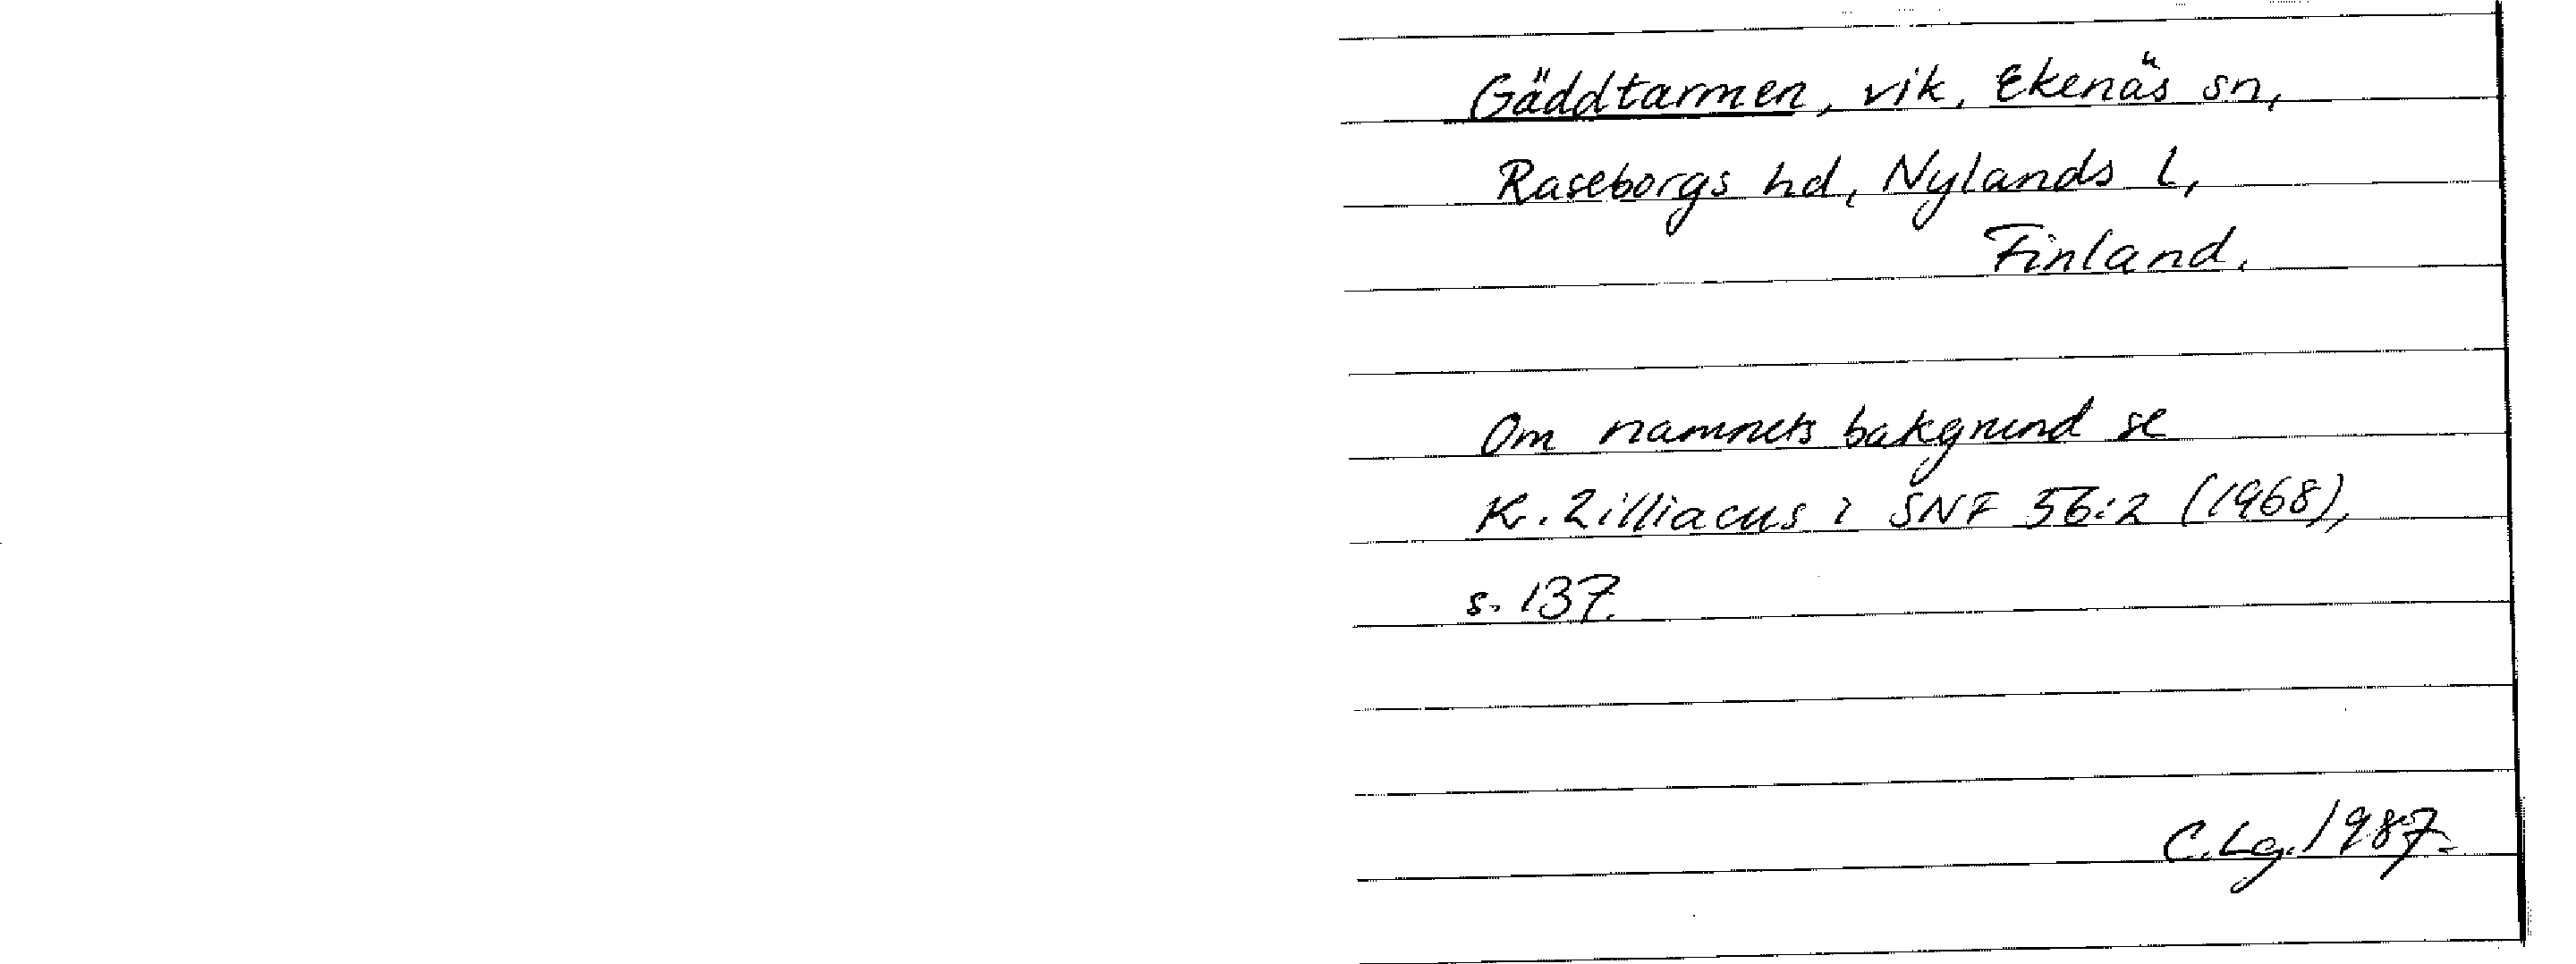 Gäddtarmen, vik, Ekenäs sn,
Raseborgs hd, Nylands l,
Finland.
Om namnets bakgrund se
K. Zilliacus i SNF 56:2 (1968),
s. 137.
C.Lg. 1987.